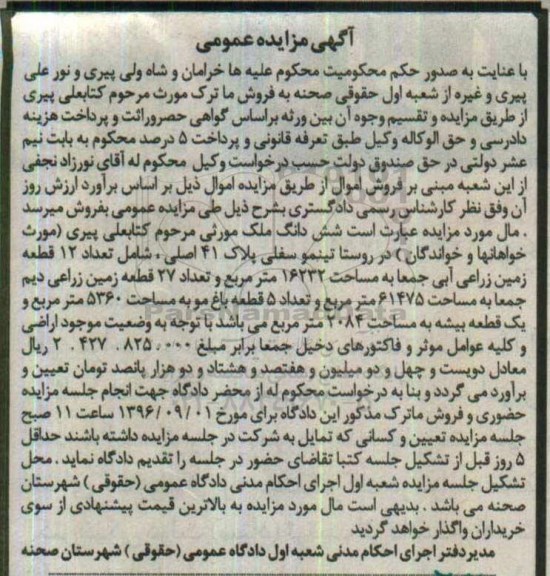 آگهی مزایده عمومی
با عنایت به صدور حکم محکومیت محکوم علیه ها خرامان و شاه ولی پیری و نور علی
پیری و غیره از شعبه اول حقوقی صحنه به فروش ما ترک مورث مرحوم کتابعلی پیری
از طریق مزایده و تقسیم وجوه آن بین ورثه براساس گواهی حصروراثت و پرداخت هزینه
دادرسی و حق الوکاله وکیل طبق تعرفه قانونی و پرداخت ۵ درصد محکوم به بابت نیم
عشر دولتی در حق صندوق دولت حسب درخواست وکیل محکوم له آقای نورزاد نجفی
از این شعبه مبنی بر فروش اموال از طریق مزایده اموال ذیل بر اساس برآورد ارزش روز
آن وفق نظر کارشناس رسمی دادگستری بشرح ذیل طی مزایده عمومی بفروش میرسد
. مال مورد مزایده عبارت است شش دانگ ملک مورثی مرحوم کتابعلی پیری (مورث
خواهانها و خواندگان ) در روستا تینمو سفلی پلاک ۴۱ اصلی ، شامل تعداد ۱۲ قطعه
زمین زراعی آبی جمعا به مساحت ۱۶۲۳۲ متر مربع و تعداد ۲۷ قطعه زمین زراعی دیم
جمعا به مساحت ۶۱۴۷۵ متر مربع و تعداد ۵ قطعه باغ مو به مساحت ۵۳۶۰ متر مربع و
یک قطعه بیشه به مساحت ۲۰۸۴ متر مربع می باشد با توجه به وضعیت موجود اراضی
و کلیه عوامل موثر و فاکتورهای دخیل جمعا برابر مبلغ ۲.۴۲۷.۸۲۵.۰۰۰ ریال
معادل دویست و چهل و دو میلیون و هفتصد و هشتاد و دو هزار پانصد تومان تعیین و
برآورد می گردد و بنا به درخواست محکوم له از محضر دادگاه جهت انجام جلسه مزایده
حضوری و فروش ماترک مذکور این دادگاه برای مورخ ۱۳۹۶/۰۹/۰۱ ساعت ۱۱ صبح
جلسه مزایده تعیین و کسانی که تمایل به شرکت در جلسه مزایده داشته باشند حداقل
۵ روز قبل از تشکیل جلسه کتبا تقاضای حضور در جلسه را تقدیم دادگاه نماید . محل
تشکیل جلسه مزایده شعبه اول اجرای احکام مدنی دادگاه عمومی (حقوقی ) شهرستان
صحنه می باشد . بدیهی است مال مورد مزایده به بالاترین قیمت پیشنهادی از سوی
خریداران واگذار خواهد گردید
مدیر دفتر اجرای احکام مدنی شعبه اول دادگاه عمومی (حقوقی ) شهرستان صحنه
ParsNamadData